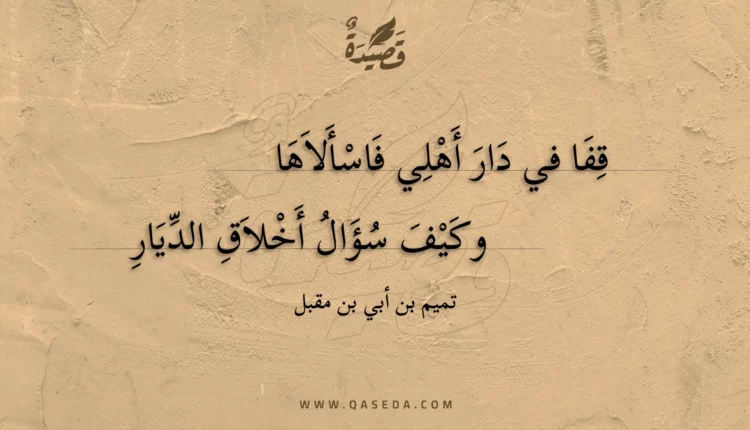 قَصِيدَةٌ
قِفَا في دَارَ أَهْلِي فَاسْأَلاَهَا
وكَيْفَ سُؤَالُ أَخْلاَقِ الدِّيَارِ
تميم بن أبي بن مقبل
WWW.QASEDA.COM